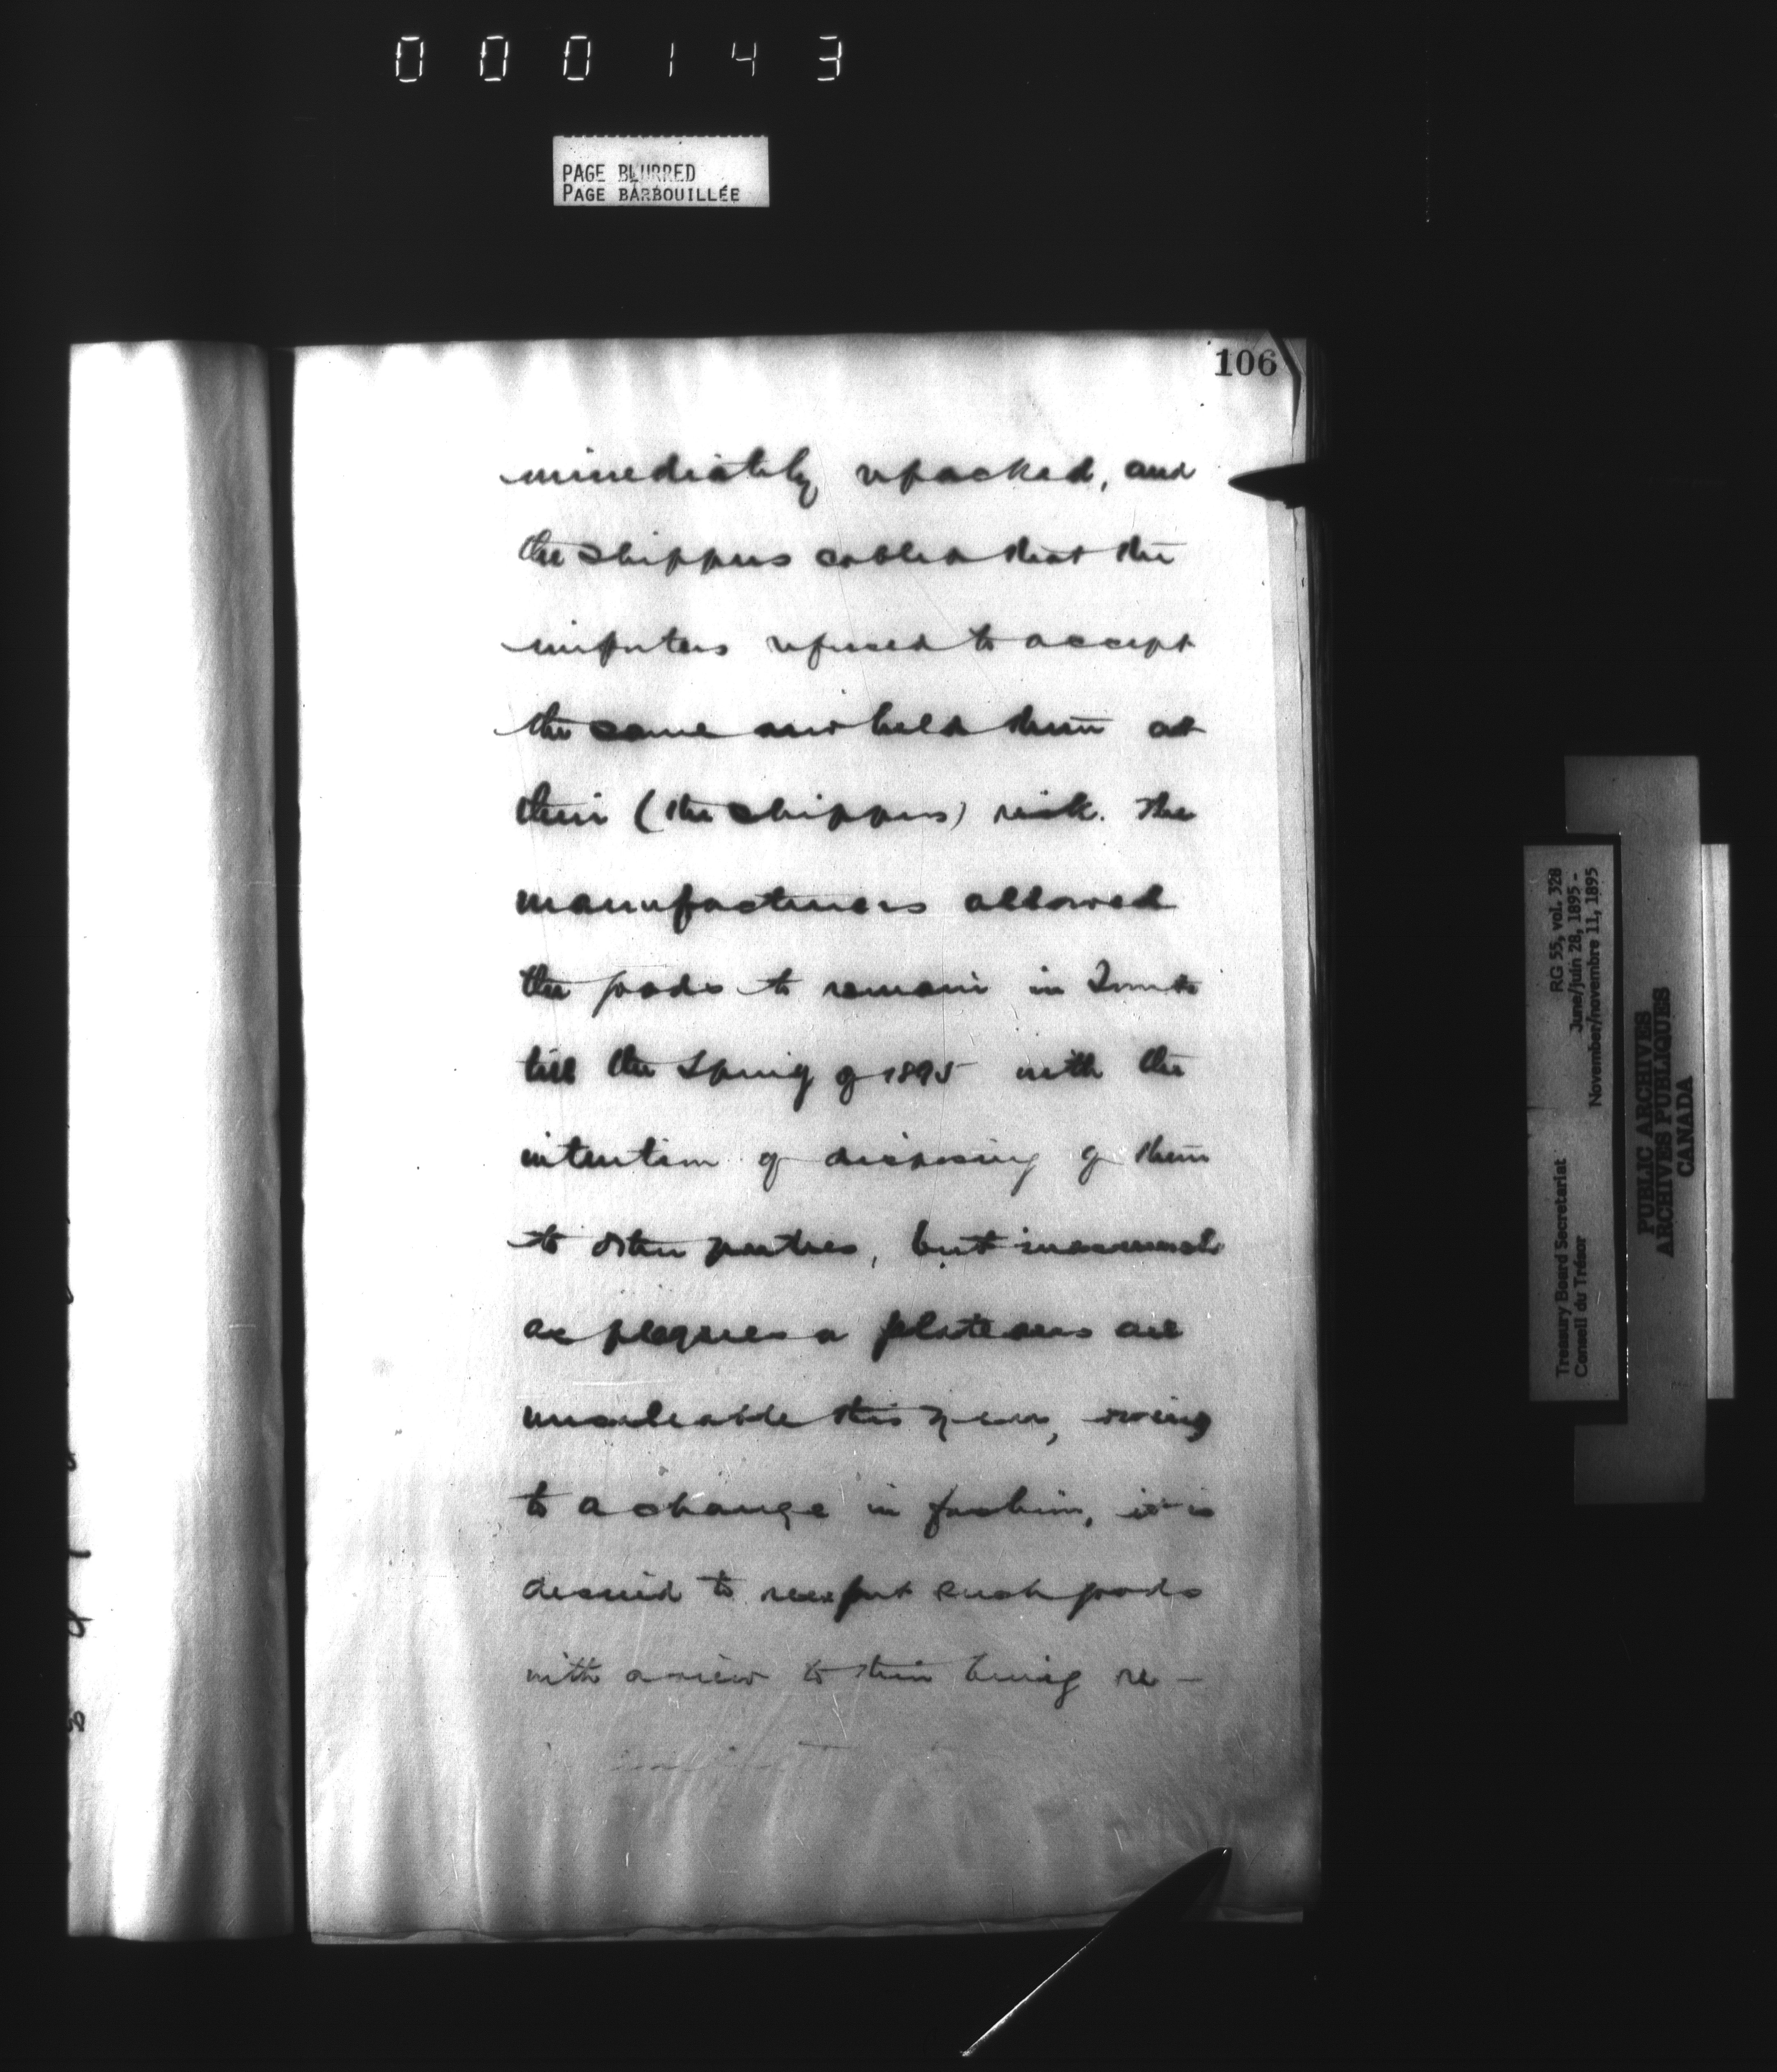 000143
PAGE BLURRED
PAGE BARBOUILLÉE
106
immediately repacked, and
the shippers cabled that the
importers refused to accept
the same and held them at
their (the shippers) risk. The
manufacturers allowed
the goods to remain in Toronto
till the Spring of 1895 with the
intention of disposing of them
to other parties, but inasmuch
as plaques or plateaus are
unsaleable this year, owing
to a change in fashion, it is
desired to reexport such goods
with a view to their being re-
Treasury Board Secretariat RG 55, vol. 328
Conseil du Trésor June/juin 28, 1895 -
November/novembre 11, 1895
PUBLIC ARCHIVES
ARCHIVES PUBLIQUES
CANADA